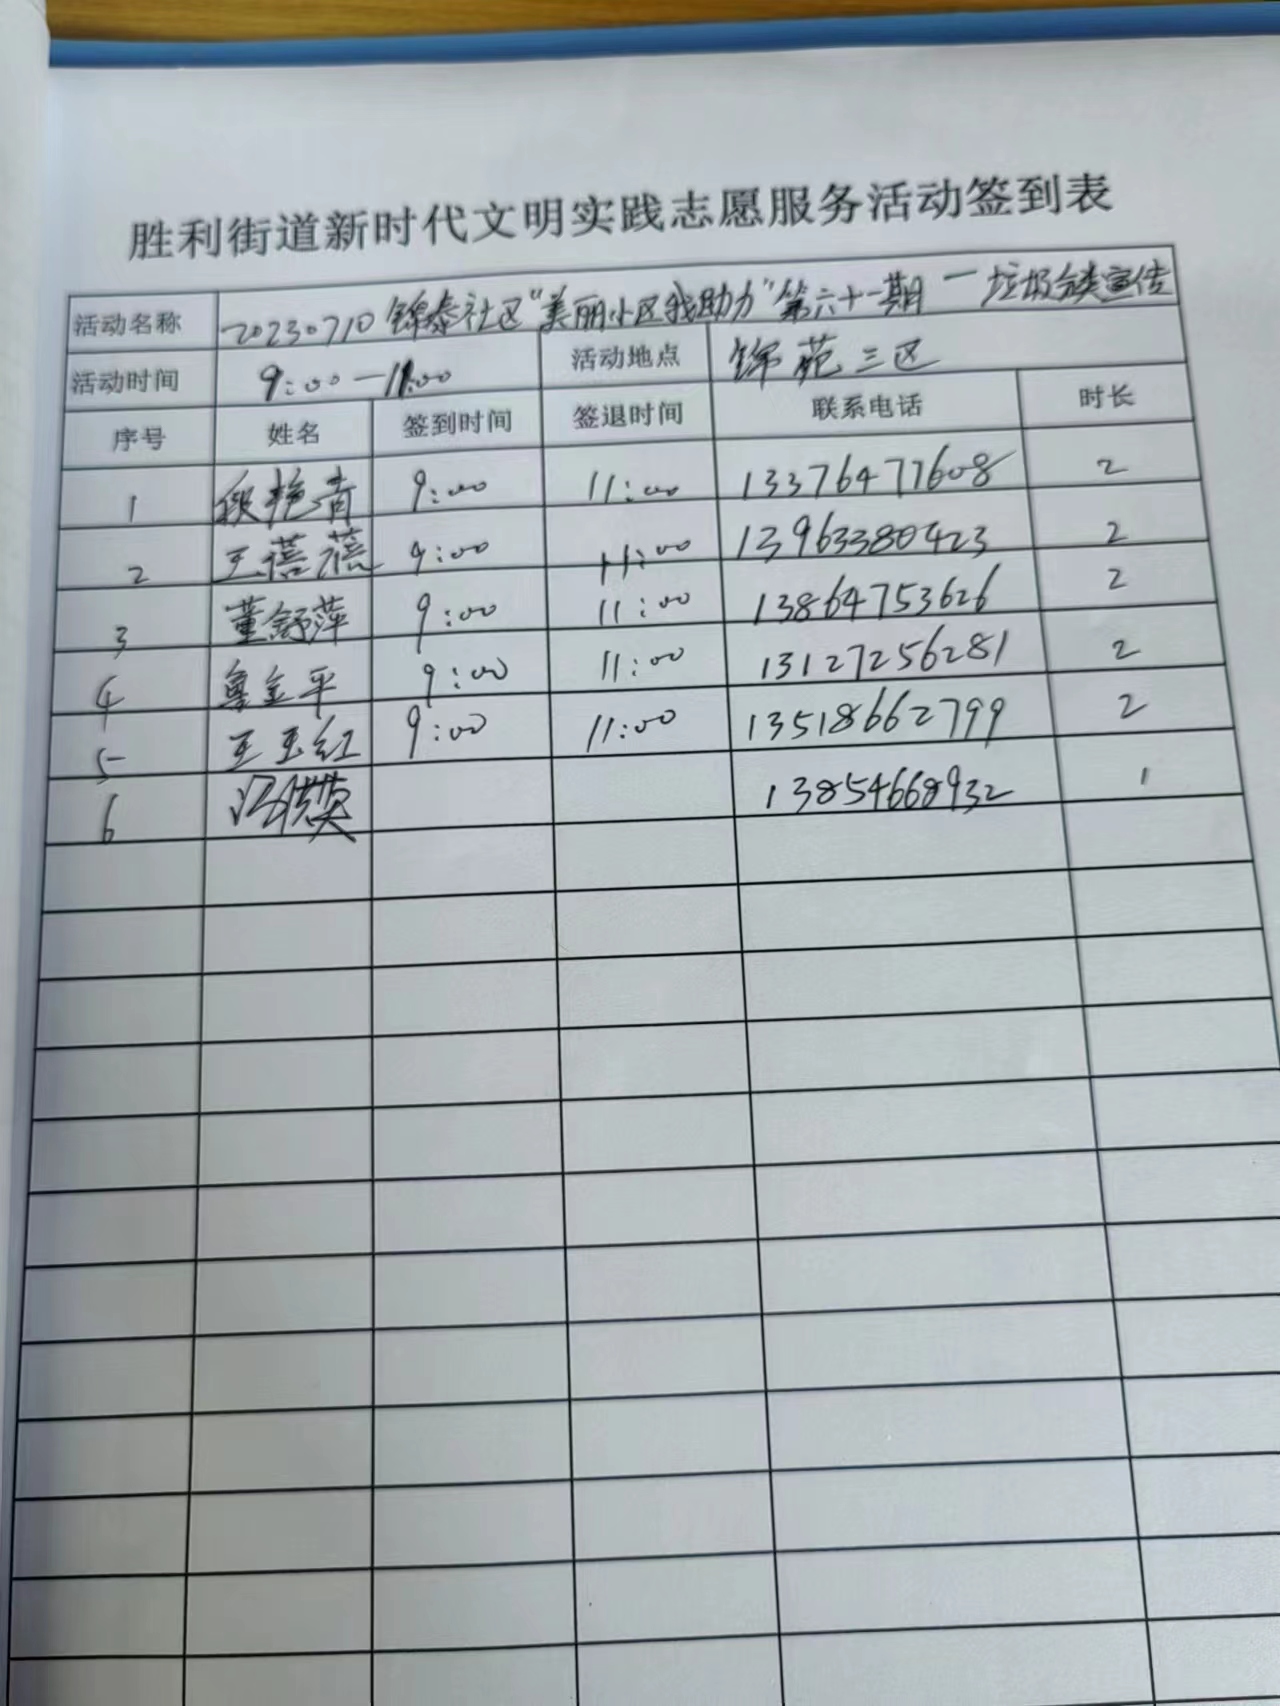 胜利街道新时代文明实践志愿服务活动签到表
活动名称 20230710 锦泰社区"美丽小区我助力"第六十一期 一 垃圾分类宣传
活动时间 9:00—11:00 活动地点 锦苑三区
序号 姓名 签到时间 签退时间 联系电话 时长
1 段艳青 9:00 11:00 13376477608 2
2 王蓓蓓 9:00 11:00 13963380423 2
3 董舒萍 9:00 11:00 13864753626 2
4 鲁金平 9:00 11:00 13127256281 2
5 王玉红 9:00 11:00 13518662799 2
6 13854668932 1